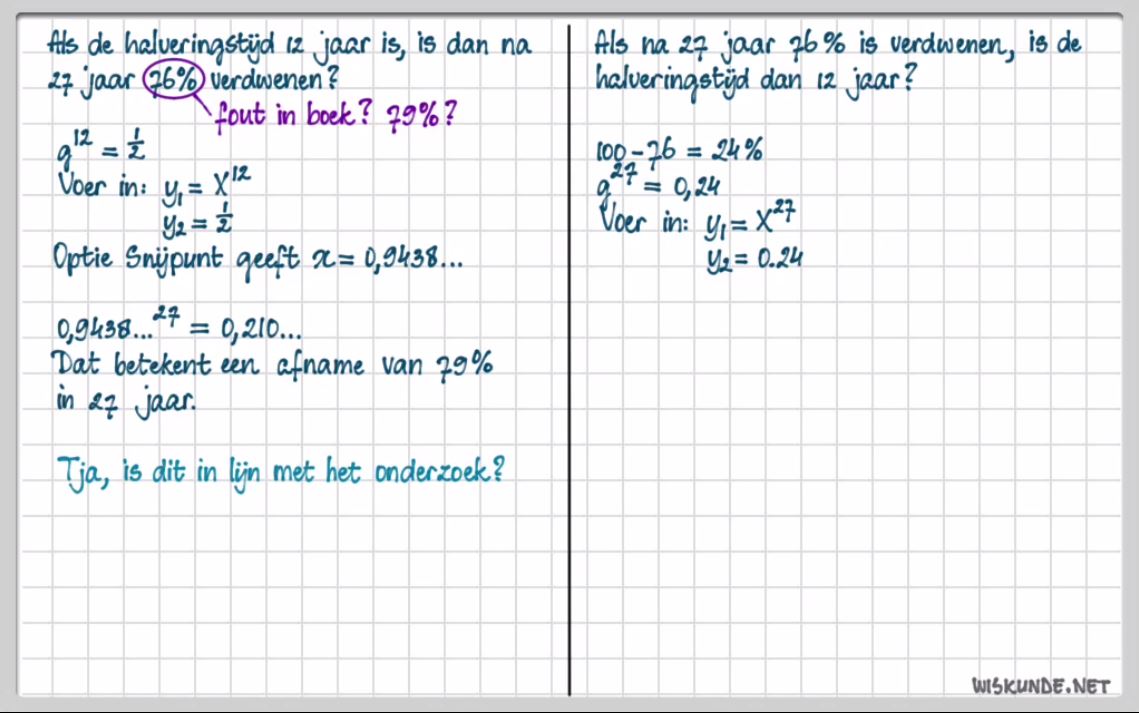 Als de halveringstijd 12 jaar is, is dan na
27 jaar 76% verdwenen?
fout in boek? 79%?
g^12 = 1/2
Voer in: y₁ = x^12
y₂ = 1/2
Optie Snijpunt geeft x = 0,9438...
0,9438...^27 = 0,210...
Dat betekent een afname van 79%
in 27 jaar.
Tja, is dit in lijn met het onderzoek?
Als na 27 jaar 76% is verdwenen, is de
halveringstijd dan 12 jaar?
100 - 76 = 24%
g^27 = 0,24
Voer in: y₁ = x^27
y₂ = 0.24
WISKUNDE.NET